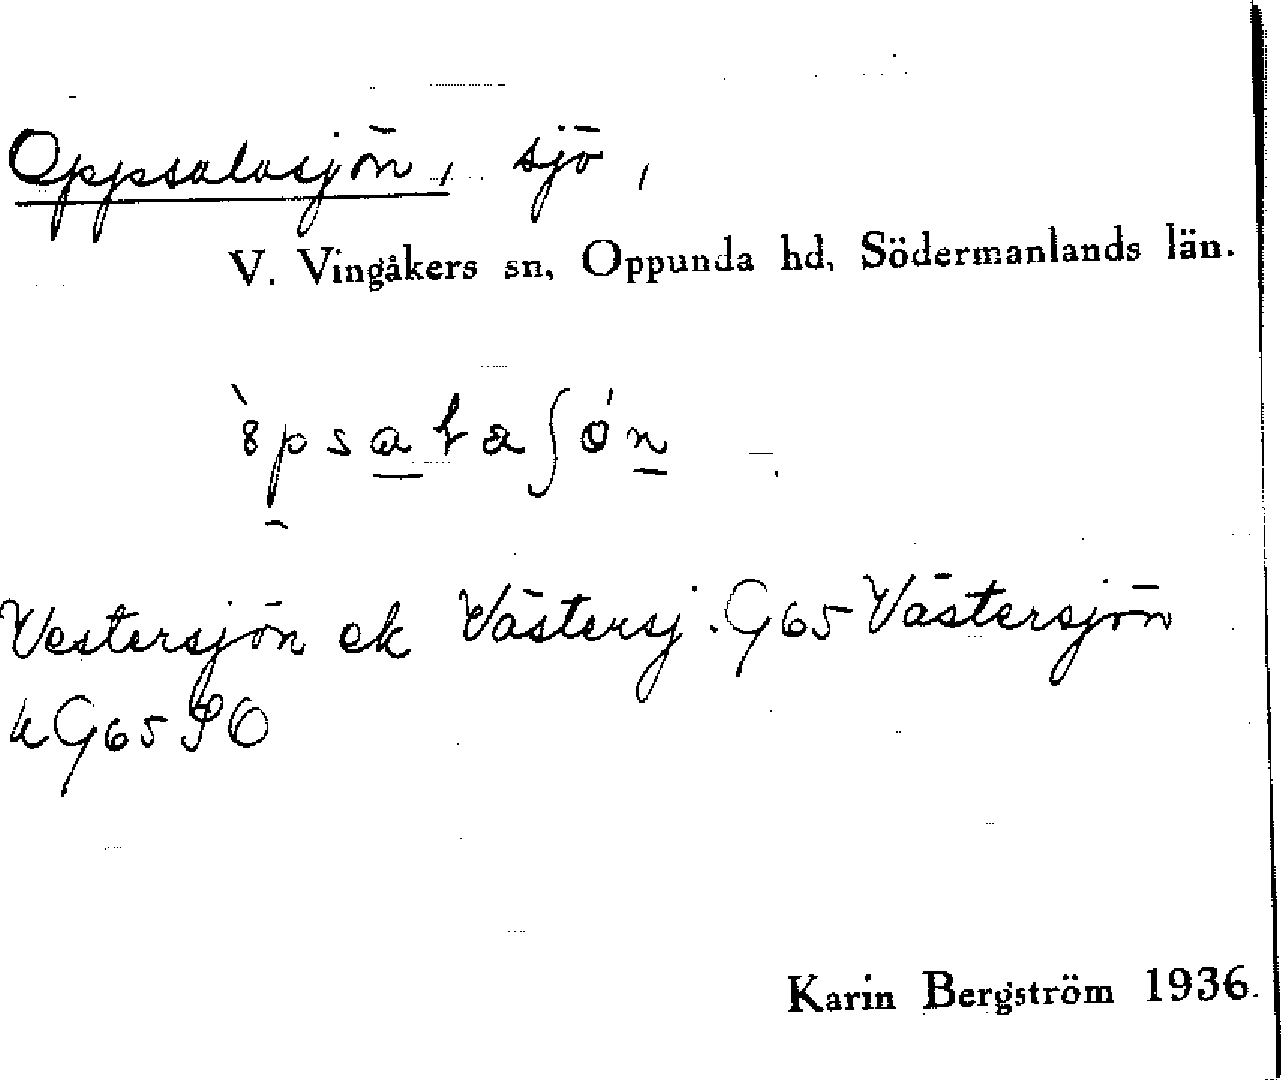 Oppsalasjön, sjö,
V. Vingåkers sn, Oppunda hd, Södermanlands län.
Vestersjön ek Västersj. G65 Västersjön
kG65 SO
Karin Bergström 1936.